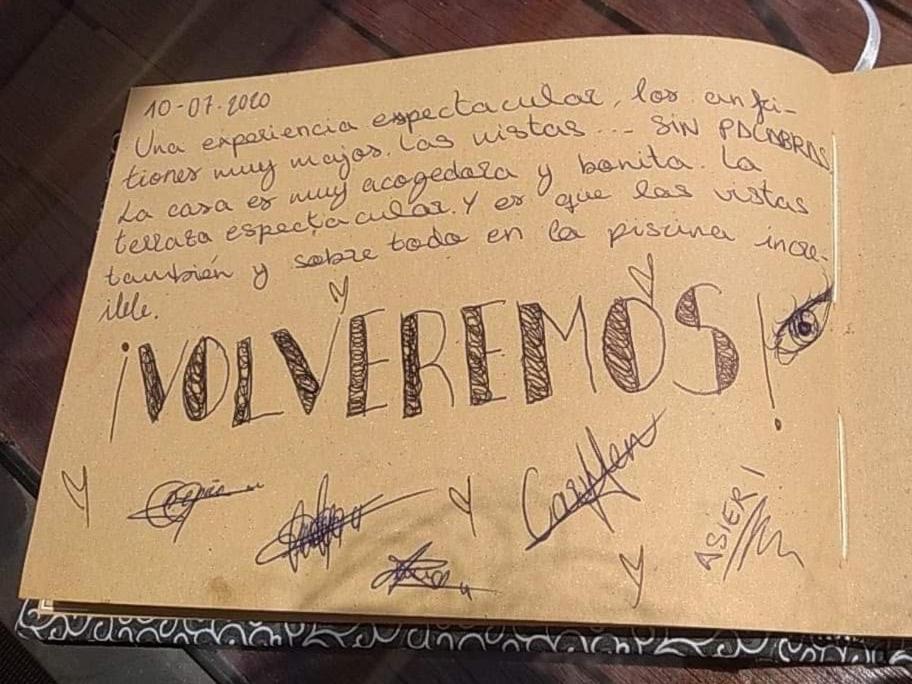 10-07-2020
Una experiencia espectacular, los anfi-
tiones muy majos. Las vistas... SIN PALABRAS
La casa es muy acogedora y bonita. La
terraza espectacular. Y es que las vistas
también y sobre todo en la piscina incre-
ible.
¡VOLVEREMOS!
Carmen
ASIER